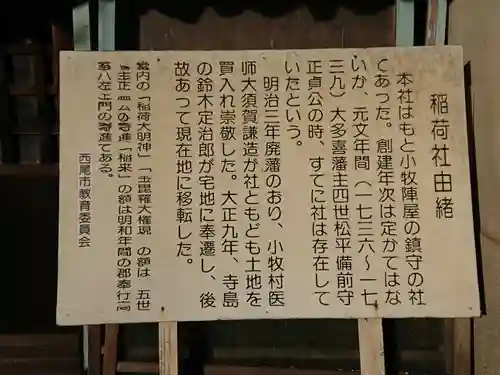 稲荷社由緒
本社はもと小牧陣屋の鎮守の社
であった。創建年次は定かではな
いか、元文年間（一七三六〜一七
三九）大多喜藩主四世松平備前守
正貞公の時、すでに社は存在して
いたという。
明治三年廃藩のおり、小牧村医
師大須賀謙造が社ともども土地を
買入れ崇敬した。大正九年、寺島
の鈴木定治郎が宅地に奉遷し、後
故あって現在地に移転した。
内の「稲荷大明神」「毘羅大権現」の額は、五世
主正公の寄進「稲来」の額は明和年間の郡奉行
八左門の寄進である。
西尾市教育委員会